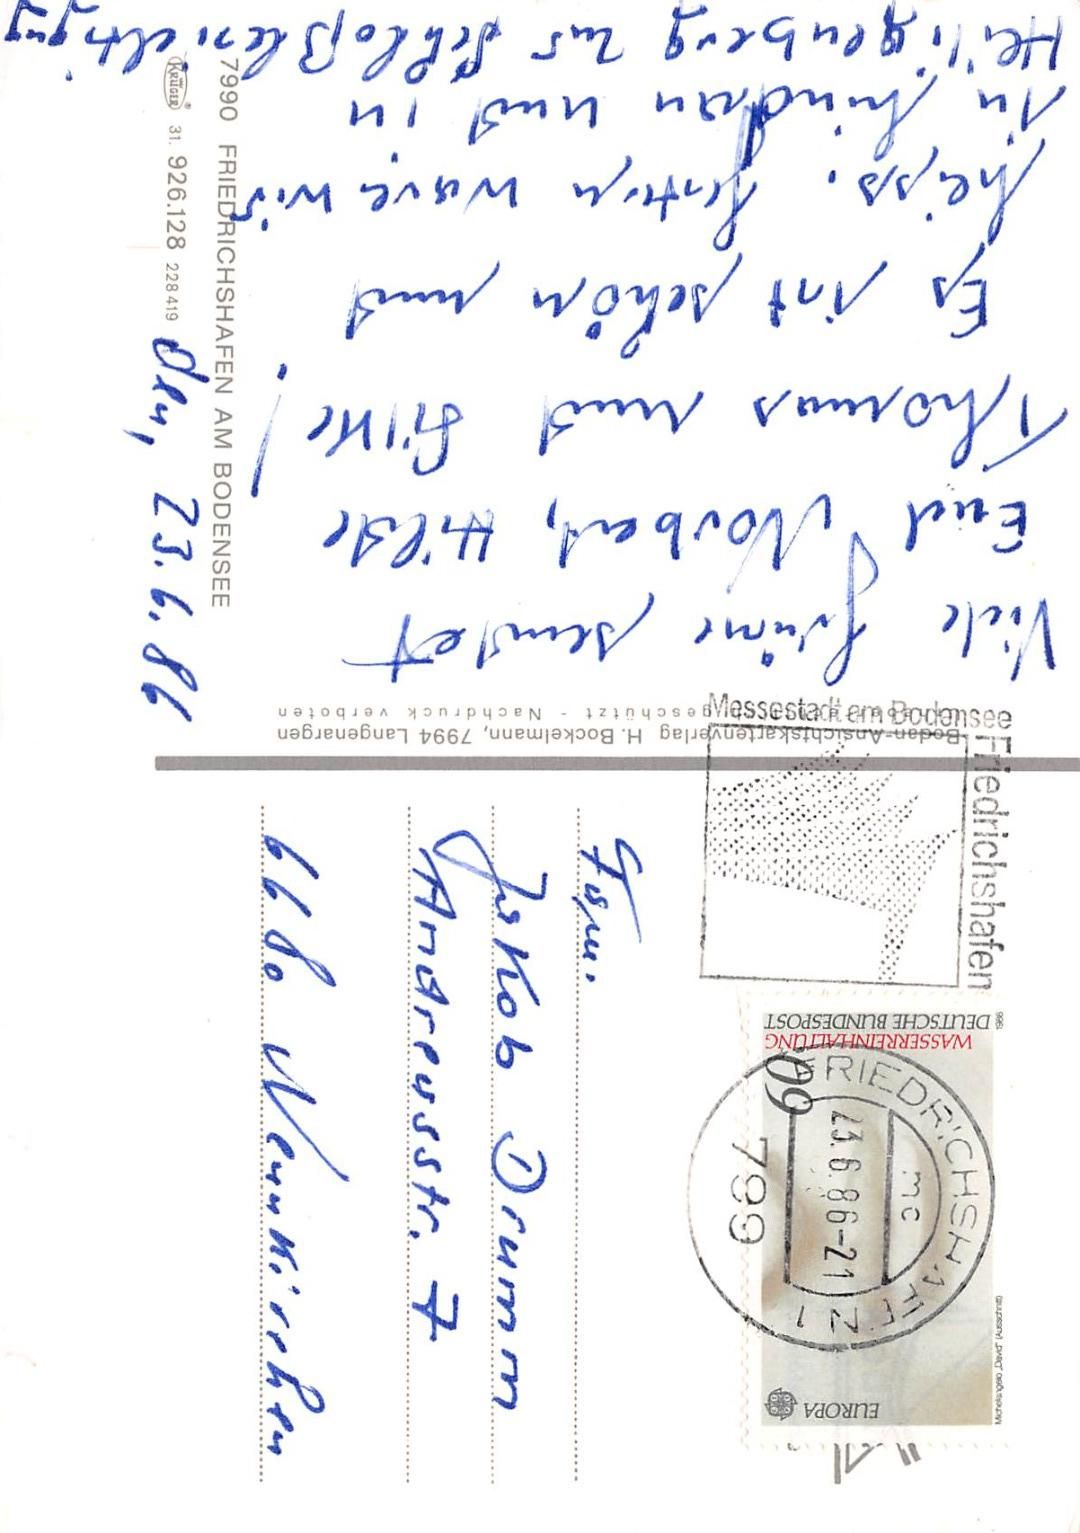 den, 23.6.86
Viele Grüße sendet
Euch Norbert, Hilde
Thomas und Silke!
Es ist schön und
heiss. Gestern waren wir
in Lindau und in
Heiligenberg zur Schloßbesichtigung
7990 FRIEDRICHSHAFEN AM BODENSEE
KRÜGER 31. 926.128 228 419
Bodan-Ansichtskartenverlag H. Bockelmann, 7994 Langenargen
geschützt - Nachdruck verboten
Messestadt am Bodensee
Friedrichshafen
FRIEDRICHSHAFEN 1
23.6.86-21
mc
799
1986
DEUTSCHE BUNDESPOST
WASSERREINHALTUNG
60
EUROPA
Michelangelo „David“ (Ausschnitt)
Fam.
Jakob Drumm
Andreasstr. 7
6680 Neunkirchen